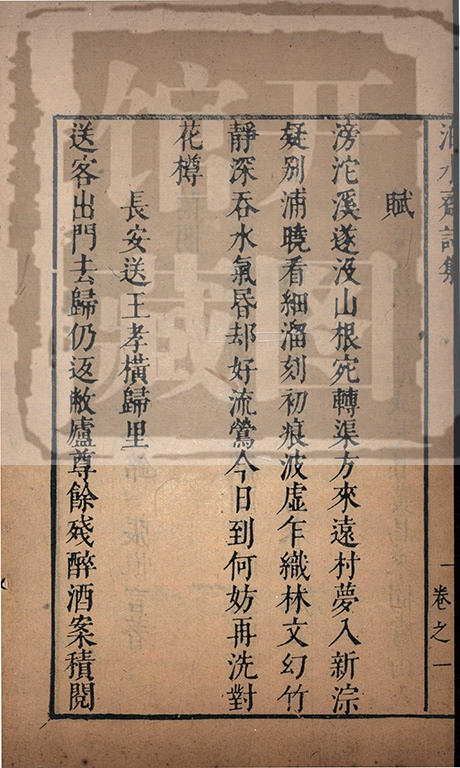 賦
滂沱溪遂没山根宛轉渠方來遠村夢入新淙
疑别浦曉看細溜刻初痕波虛乍織林文幻竹
靜深吞水氣昏却好流鶯今日到何妨再洗對
花樽
長安送王孝橫歸里
送客出門去歸仍返敝廬尊餘殘醉酒案積閱
卷之一